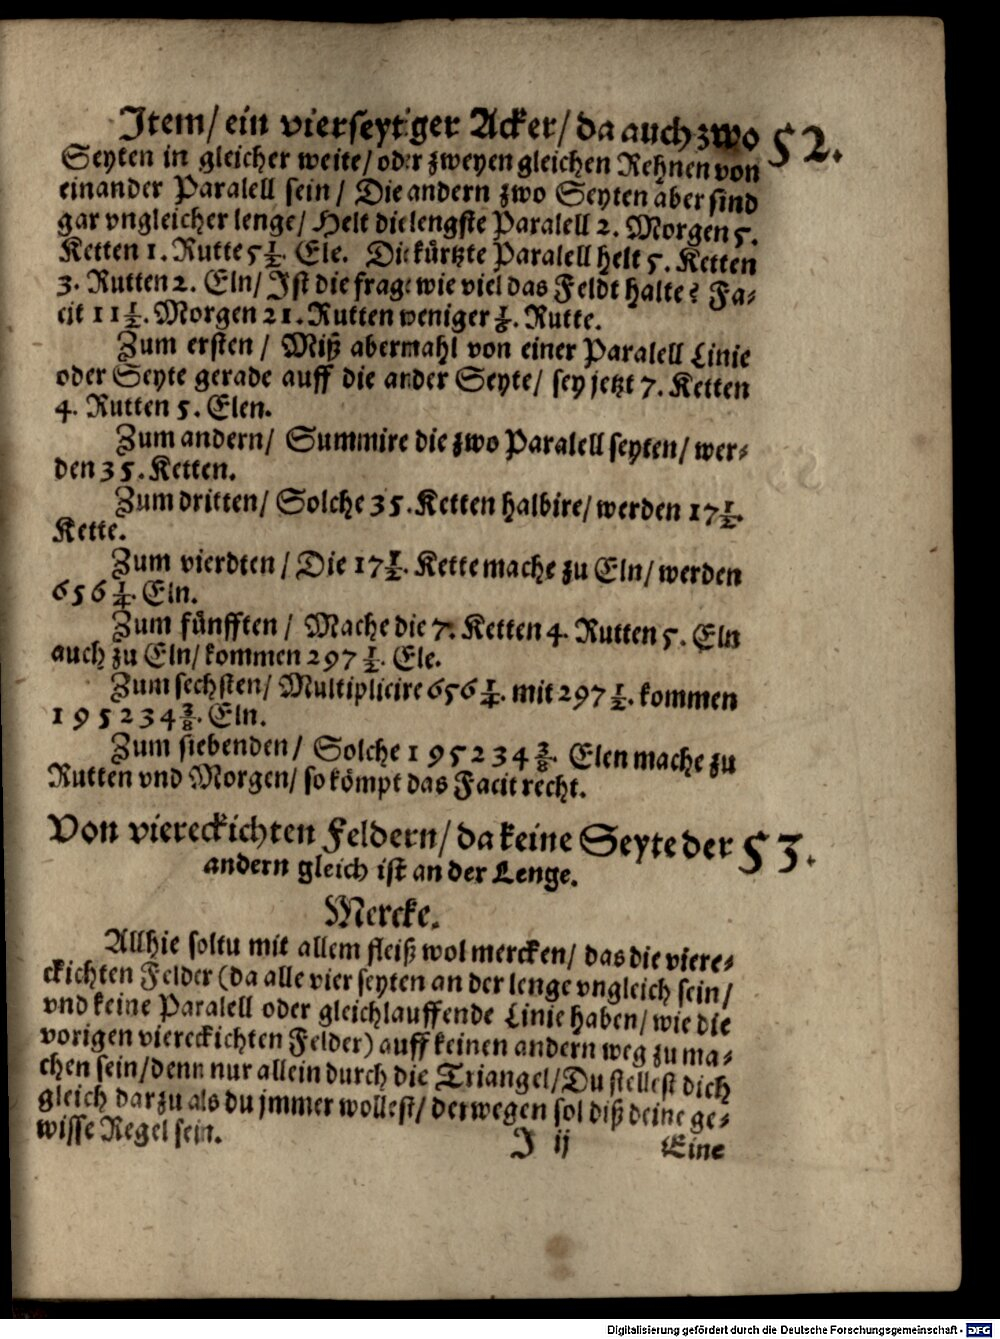 Item/ ein vierseytiger Acker/ da auch zwo 52.
Seyten in gleicher weite/ oder zweyen gleichen Rehnen von
einander Paralell sein / Die andern zwo Seyten aber sind
gar vngleicher lenge/ Helt die lengste Paralell 2. Morgen 5.
Ketten 1. Rutte 5 1/2. Ele. Die kürtzte Paralell helt 5. Ketten
3. Rutten 2. Eln/ Ist die frage wie viel das Feldt halte? Fa-
cit 11 1/2. Morgen 21. Rutten weniger 1/8. Rutte.
Zum ersten / Miß abermahl von einer Paralell Linie
oder Seyte gerade auff die ander Seyte/ sey jetzt 7. Ketten
4. Rutten 5. Elen.
Zum andern/ Summire die zwo Paralell seyten/ wer-
den 35. Ketten.
Zum dritten/ Solche 35. Ketten halbire/ werden 17 1/2.
Kette.
Zum vierdten / Die 17 1/2. Kette mache zu Eln/ werden
656 1/4. Eln.
Zum fünfften / Mache die 7. Ketten 4. Rutten 5. Eln
auch zu Eln/ kommen 297 1/2. Ele.
Zum sechsten/ Multiplicire 656 1/4. mit 297 1/2. kommen
195234 3/8. Eln.
Zum siebenden/ Solche 195234 3/8. Elen mache zu
Rutten vnd Morgen/ so kömpt das Facit recht.
Von viereckichten Feldern/ da keine Seyte der 53.
andern gleich ist an der Lenge.
Mercke.
Allhie soltu mit allem fleiß wol mercken/ das die viere-
ckichten Felder (da alle vier seyten an der lenge vngleich sein/
vnd keine Paralell oder gleichlauffende Linie haben/ wie die
vorigen viereckichten Felder) auff keinen andern weg zu ma-
chen sein/ denn nur allein durch die Triangel/ Du stellest dich
gleich darzu als du jmmer wollest/ derwegen sol diß deine ge-
wisse Regel sein.
I ij Eine
Digitalisierung gefördert durch die Deutsche Forschungsgemeinschaft - DFG